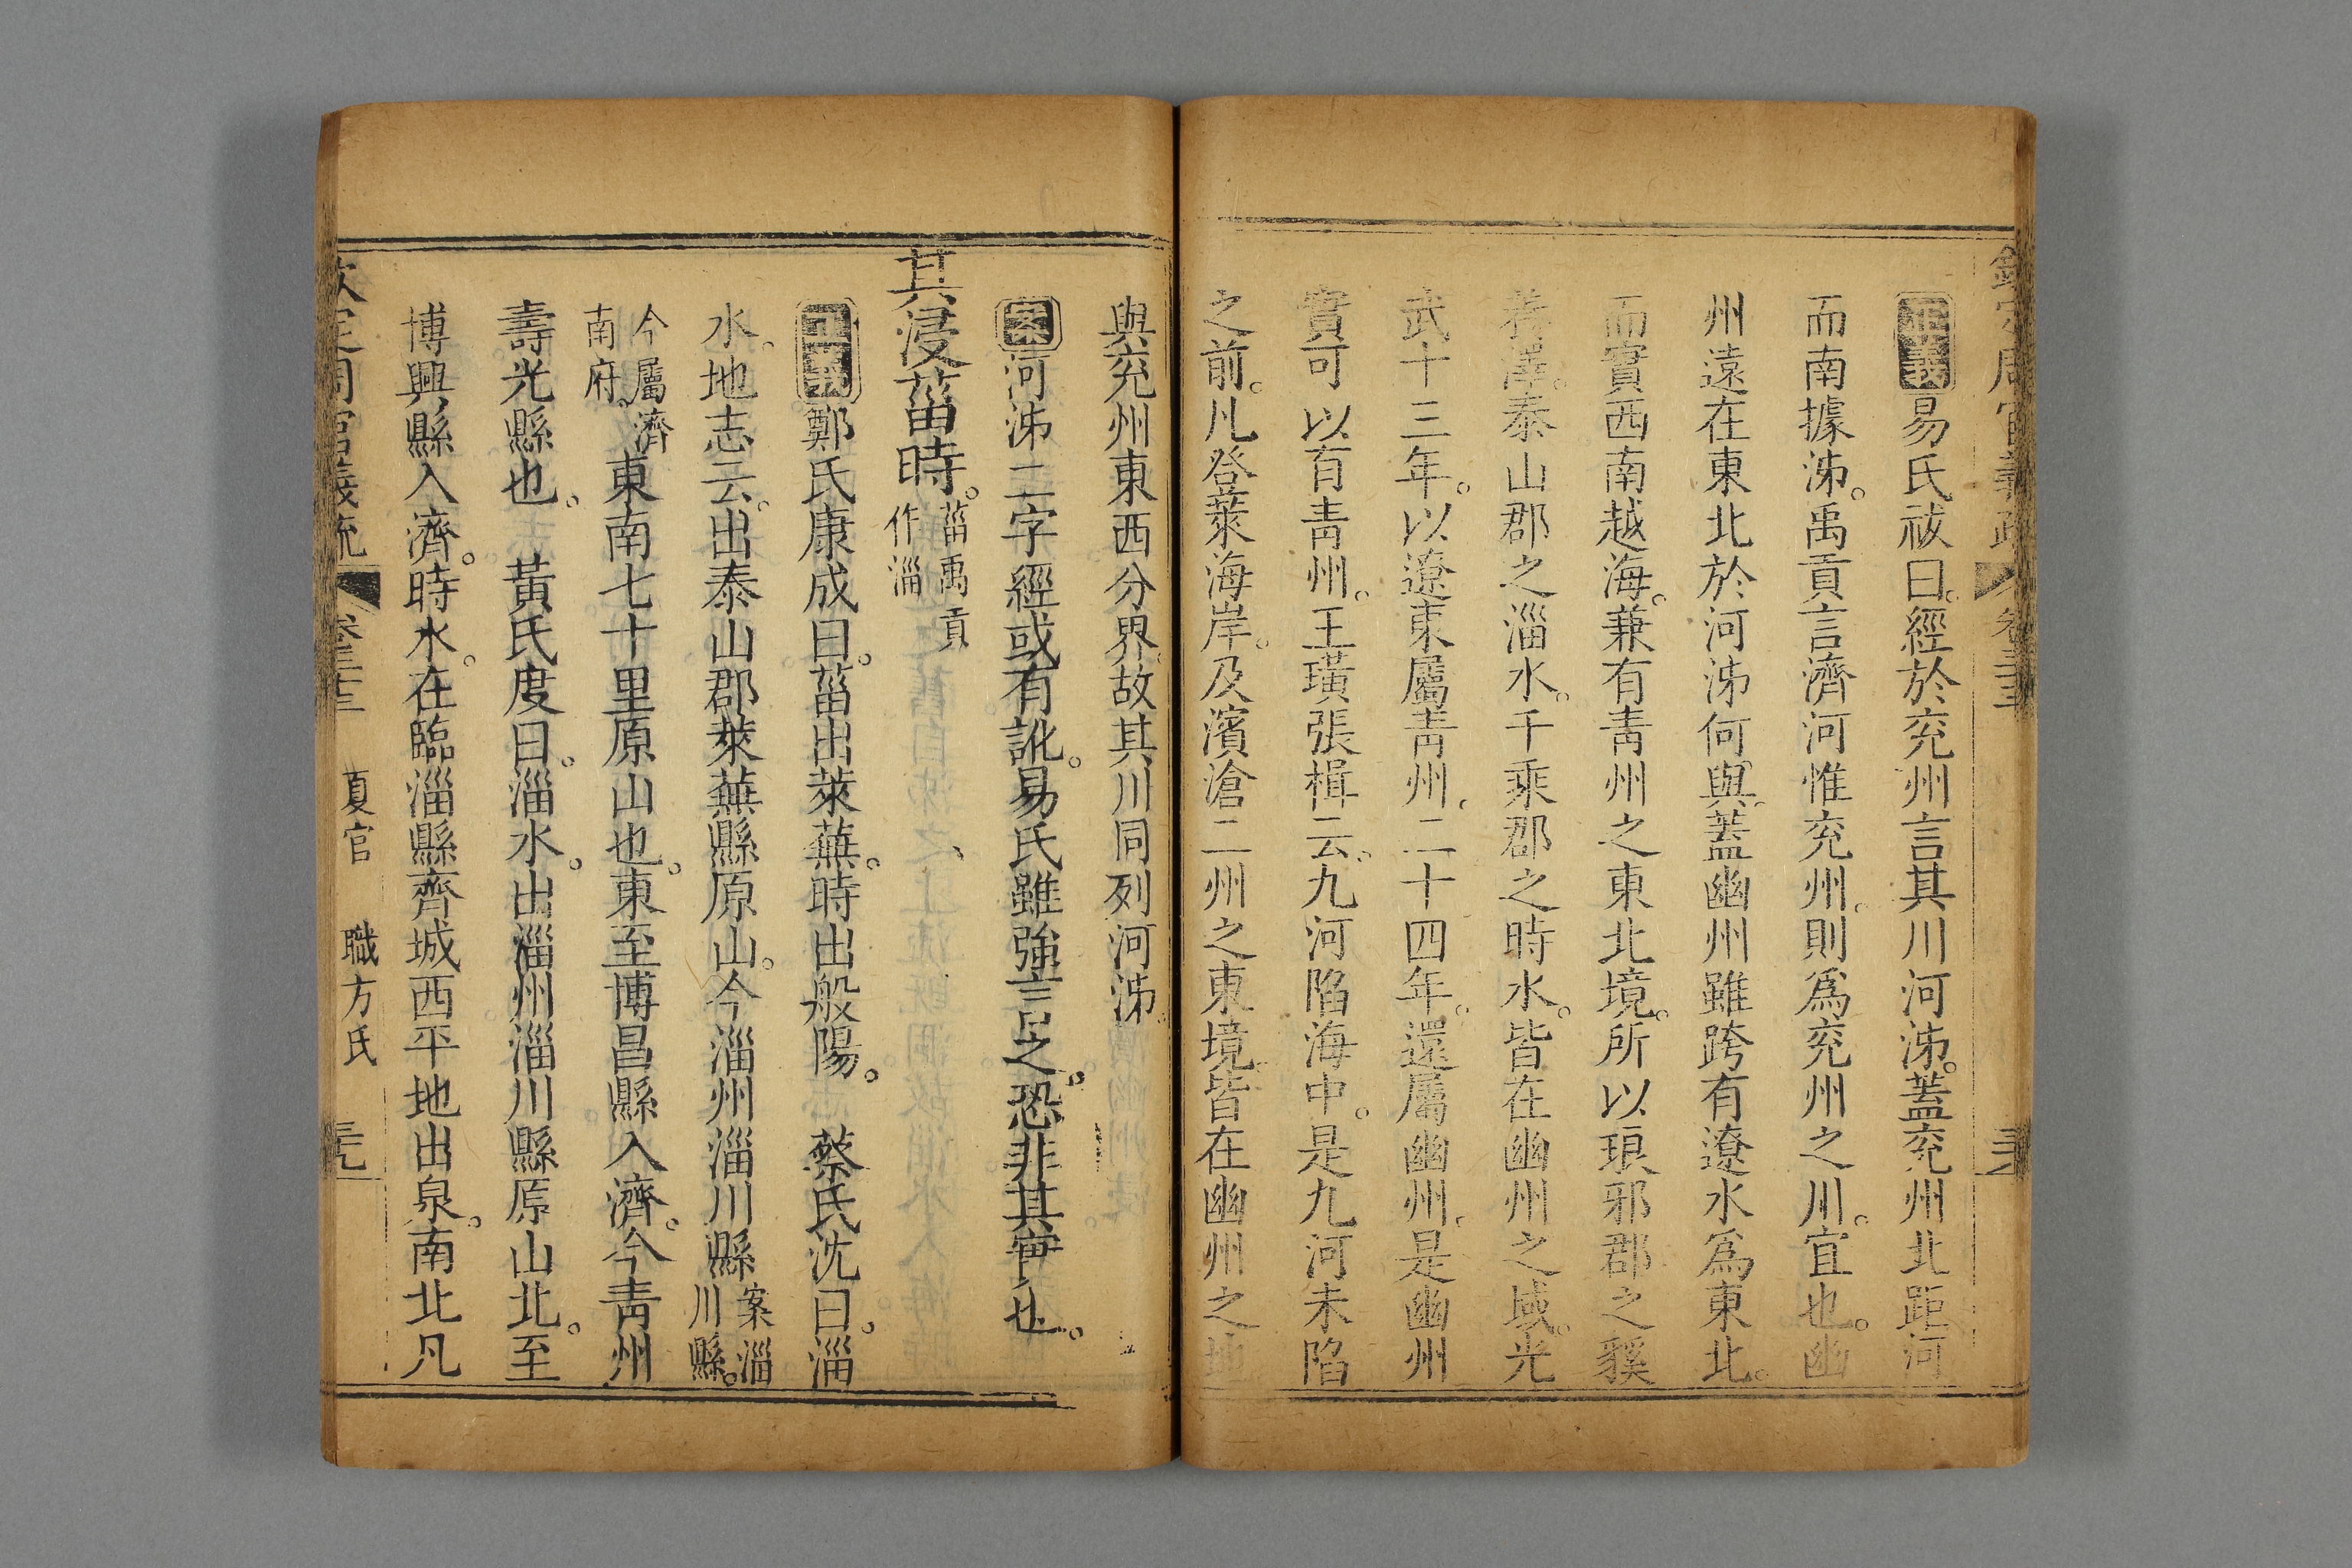 正義易氏祓曰。經於兖州言其川河泲。蓋兖州北距河
而南據泲。禹貢言濟河惟兖州。則爲兖州之川。宜也。幽
州遠在東北於河泲何與。蓋幽州雖跨有遼水爲東北。
而實西南越海。兼有靑州之東北境。所以琅邪郡之貕
養澤。泰山郡之淄水。千乘郡之時水。皆在幽州之域。光
武十三年。以遼東屬靑州。二十四年。還屬幽州。是幽州
實可以有靑州。王璜張楫云。九河陷海中。是九河未陷
之前。凡登萊海岸。及濱滄二州之東境。皆在幽州之地
與兖州東西分界。故其川同列河泲。
案河泲二字經或有訛。易氏雖強言之。恐非其實也。
其浸菑時。菑禹貢作淄
正義鄭氏康成曰。菑出萊蕪。時出般陽。 蔡氏沈曰。淄
水。地志云。出泰山郡萊蕪縣原山。今淄州淄川縣案淄川縣。
今屬濟南府。東南七十里原山也。東至博昌縣入濟。今靑州
壽光縣也。 黃氏度曰。淄水。出淄州淄川縣原山北。至
博興縣入濟。時水。在臨淄縣齊城西平地出泉。南北凡
欽定周官義疏 卷三十三 夏官 職方氏